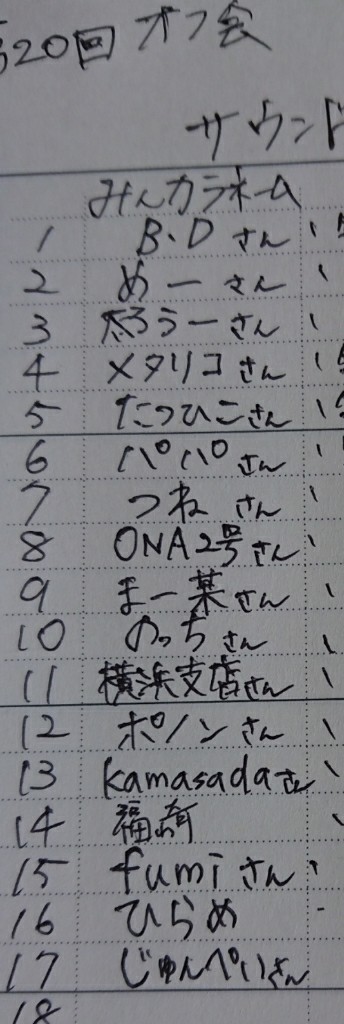 第20回 オフ会
サウンド
みんカラネーム
1 B・D さん
2 めー さん
3 太ろうーさん
4 メタリコさん
5 たつひこさん
6 パパ さん
7 つね さん
8 ONA2号さん
9 まー某さん
10 のっち さん
11 横浜支店さん
12 ポノンさん
13 kamasadaさん
14 福崎
15 fumiさん
16 ひらめ
17 じゅんぺいさん
18